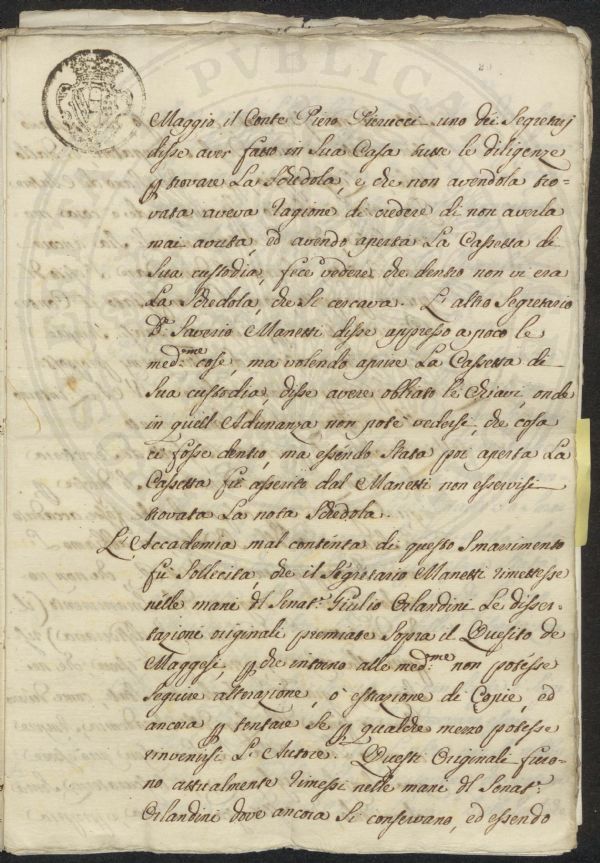 Maggio il Conte Piero Pierucci uno dei Segretarj
disse aver fatto in Sua Casa tutte le diligenze
p trovare La Schedola, e che non avendola tro-
vata aveva ragione di credere di non averla
mai avuta, ed avendo aperta La Cassetta di
Sua custodia, fece vedere, che dentro non vi era
La Schedola, che Si cercava. L'altro Segretario
Dr. Saverio Manetti disse appresso a poco le
med.me cose, ma volendo aprire La Cassetta di
Sua custodia, disse avere obliato le Chiavi, onde
in quell'Adunanza non potè vedersi, che cosa
ci fosse dentro, ma essendo Stata poi aperta La
Cassetta fù asserito dal Manetti non esservisi
trovata La nota Schedola.
L'Accademia mal contenta di questo Smarrimento
fù Sollecita, che il Segretario Manetti rimettesse
nelle mani dl Senat.r Giulio Orlandini Le disser-
tazioni originali premiate Sopra il Quesito de
Maggesi, p che intorno alle med.me non potesse
Seguire alterazione, o estrazione di Copie, ed
ancora p tentare Se p qualche mezzo potesse
rinvenirsi L'Autore. Questi Originali furo-
no attualmente rimessi nelle mani dl Senat.r
Orlandini dove ancora Si conservano, ed essendo